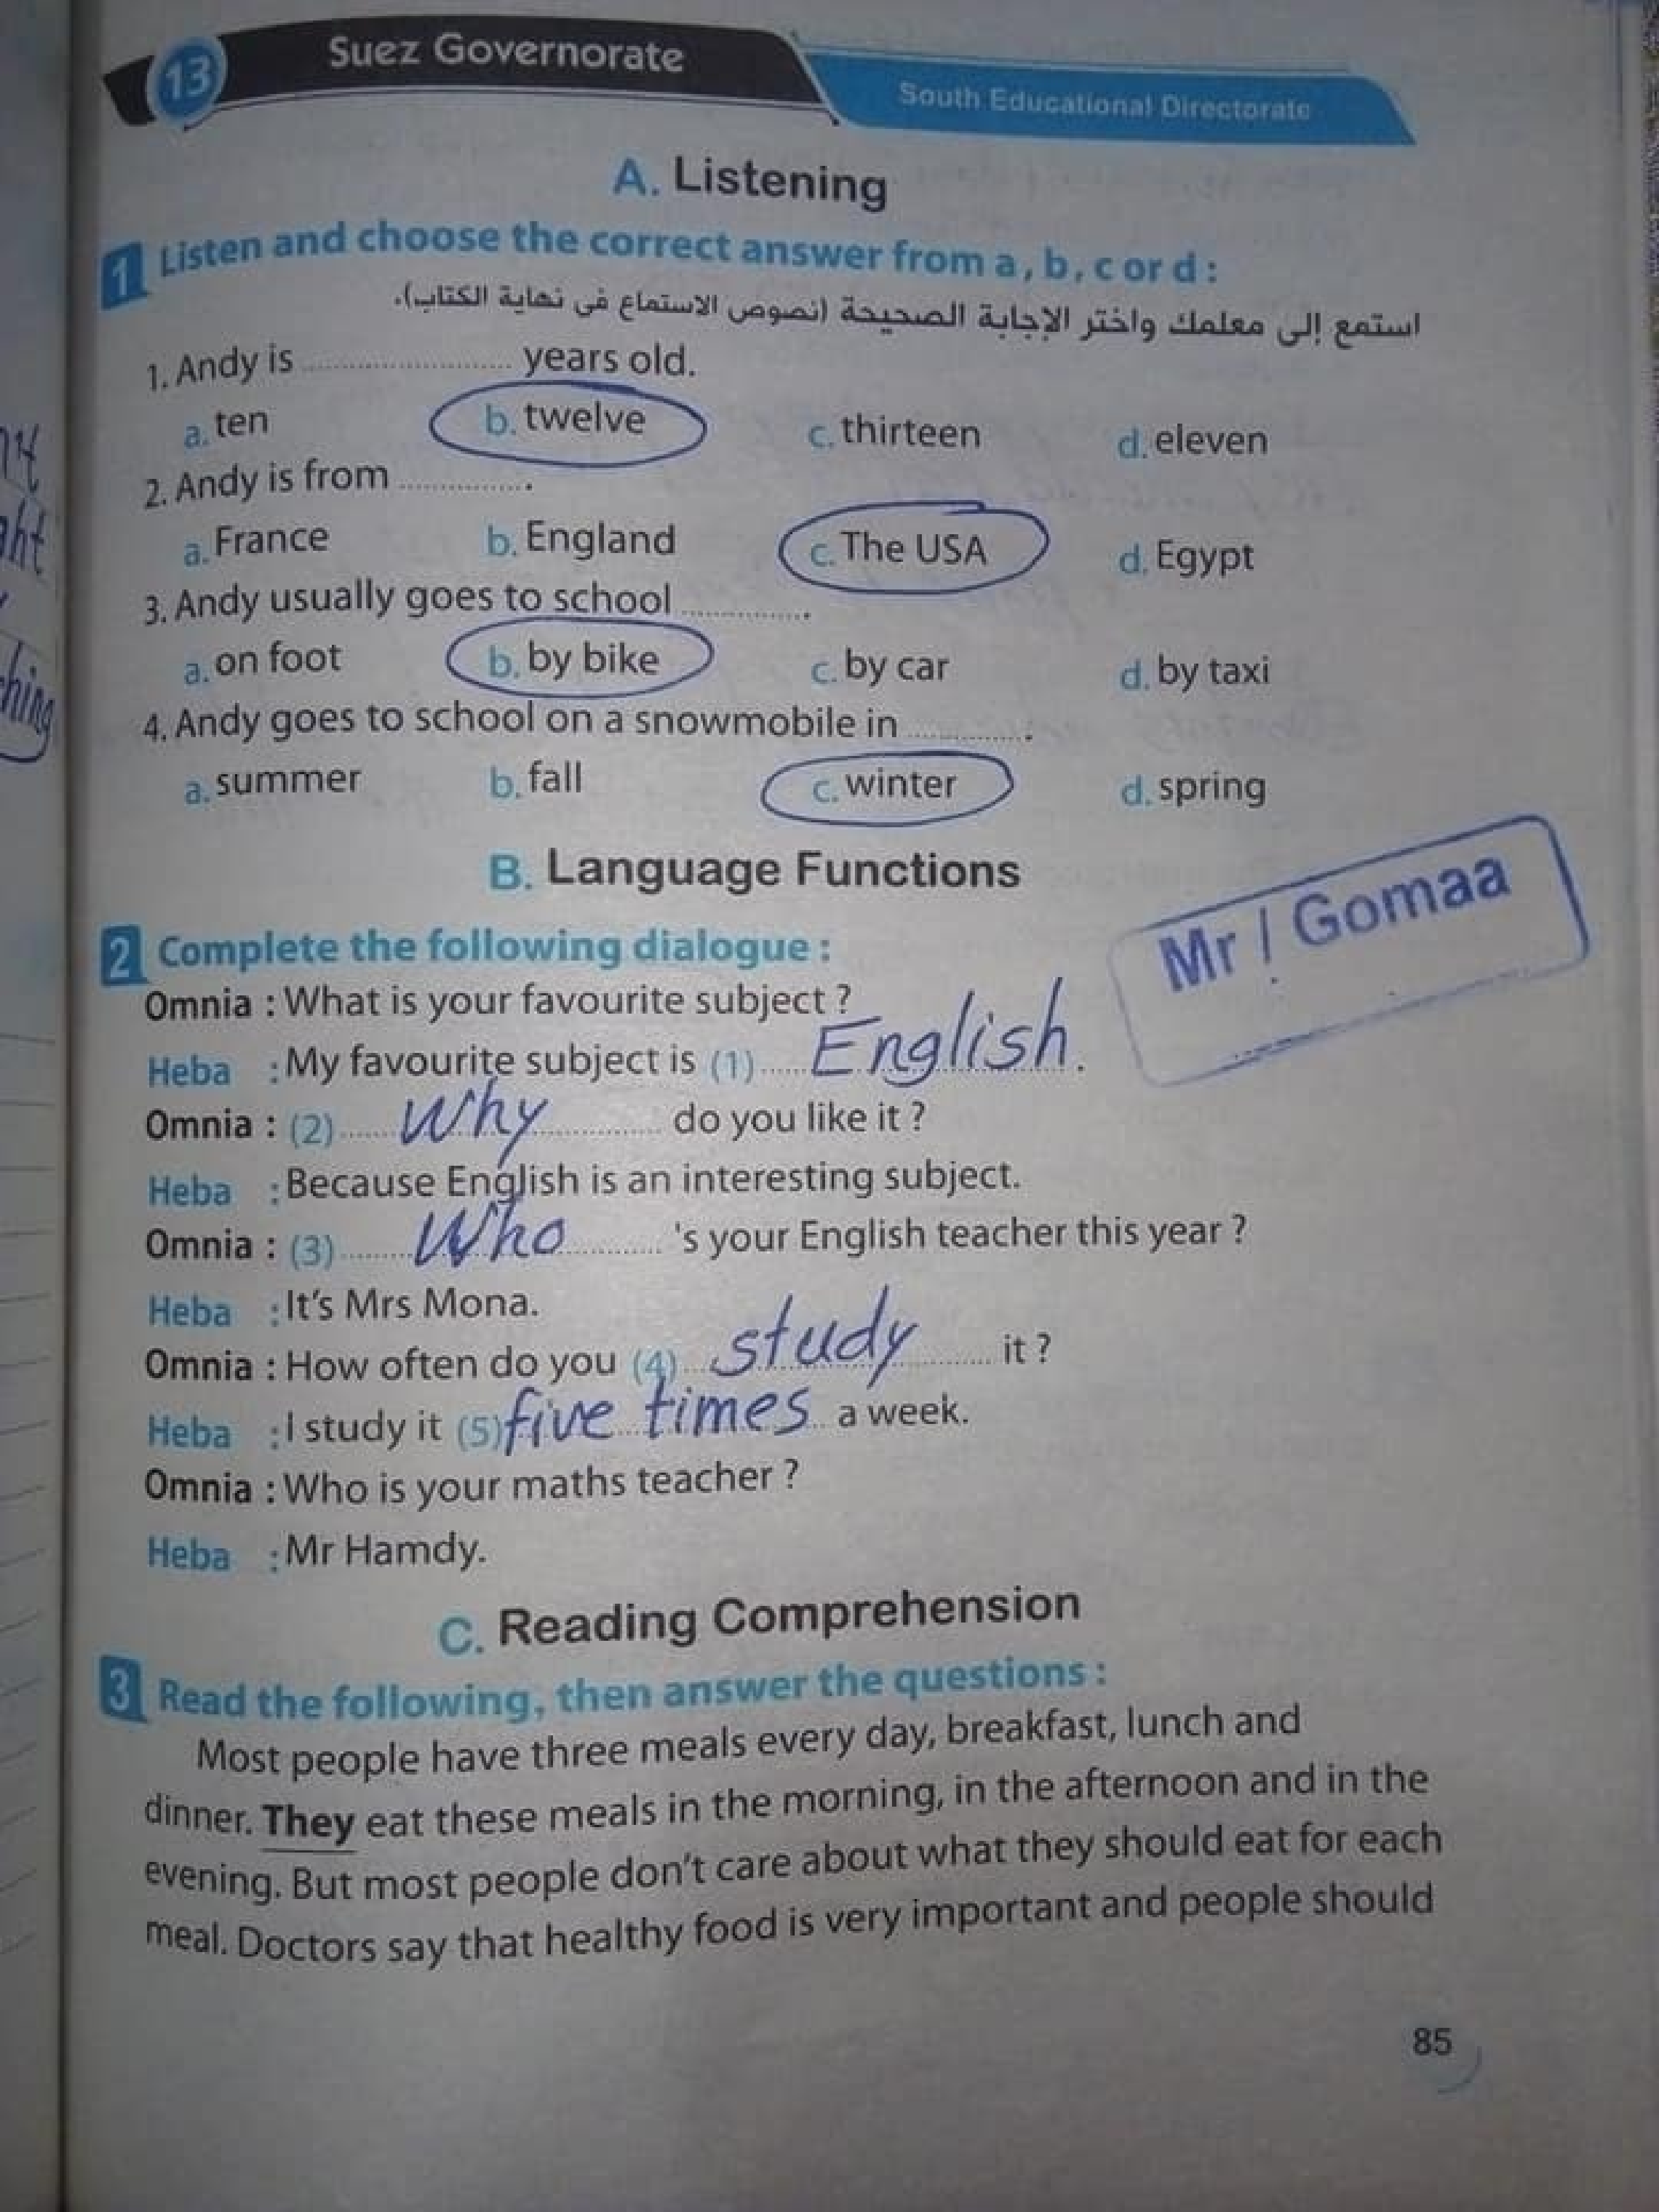 13 Suez Governorate
South Educational Directorate
A. Listening
1 Listen and choose the correct answer from a, b, c or d :
استمع إلى معلمك واختر الإجابة الصحيحة (نصوص الاستماع فى نهاية الكتاب).
1. Andy is .................... years old.
a. ten b. twelve c. thirteen d. eleven
2. Andy is from .............. .
a. France b. England c. The USA d. Egypt
3. Andy usually goes to school .............. .
a. on foot b. by bike c. by car d. by taxi
4. Andy goes to school on a snowmobile in ............ .
a. summer b. fall c. winter d. spring
B. Language Functions
Mr / Gomaa
2 Complete the following dialogue :
Omnia : What is your favourite subject ?
Heba : My favourite subject is (1) English.
Omnia : (2) Why do you like it ?
Heba : Because English is an interesting subject.
Omnia : (3) Who 's your English teacher this year ?
Heba : It's Mrs Mona.
Omnia : How often do you (4) study it ?
Heba : I study it (5) five times a week.
Omnia : Who is your maths teacher ?
Heba : Mr Hamdy.
C. Reading Comprehension
3 Read the following, then answer the questions :
Most people have three meals every day, breakfast, lunch and
dinner. They eat these meals in the morning, in the afternoon and in the
evening. But most people don't care about what they should eat for each
meal. Doctors say that healthy food is very important and people should
85